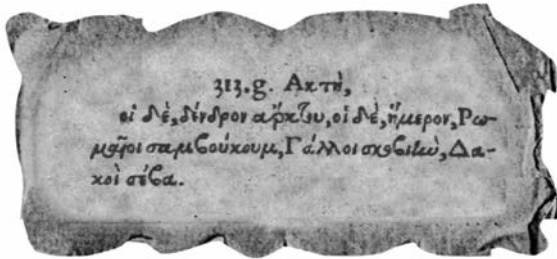 313.g. Ακτὴ,
οἱ δὲ, δένδρον ἄρκτου, οἱ δὲ, ἥμερον, Ρω-
μαῖοι σαμβούκουμ, Γάλλοι σκοβιὴμ, Δα-
κοὶ σέβα.